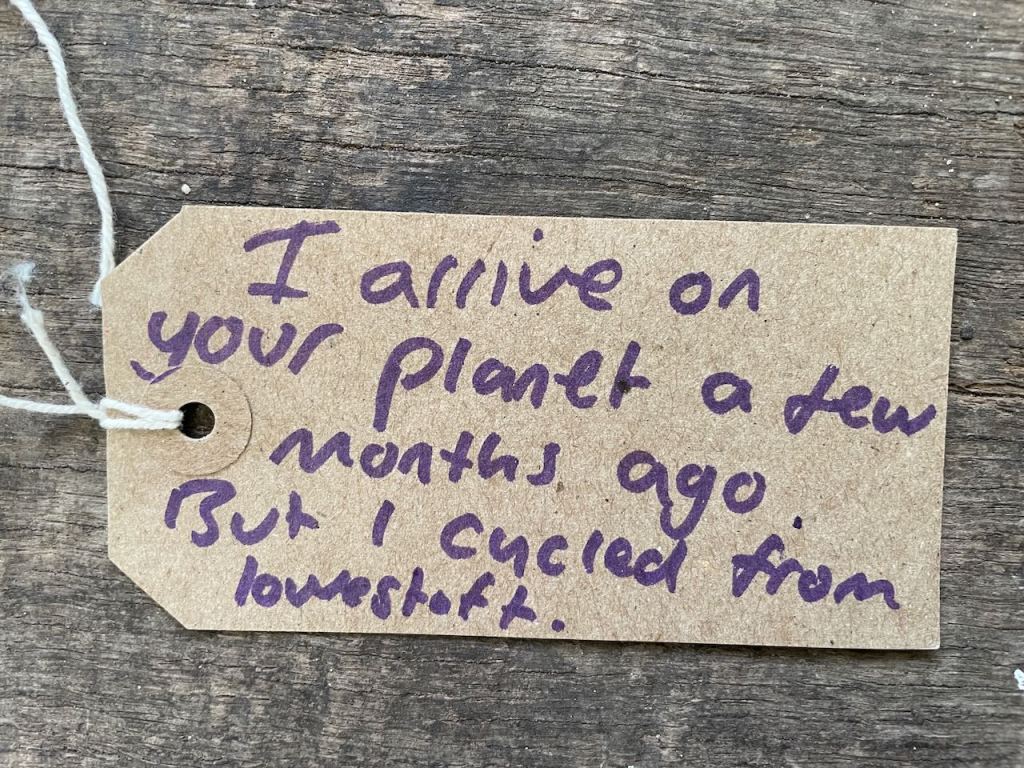 I arrive on
your planet a few
months ago.
But I cycled from
lowestoft.